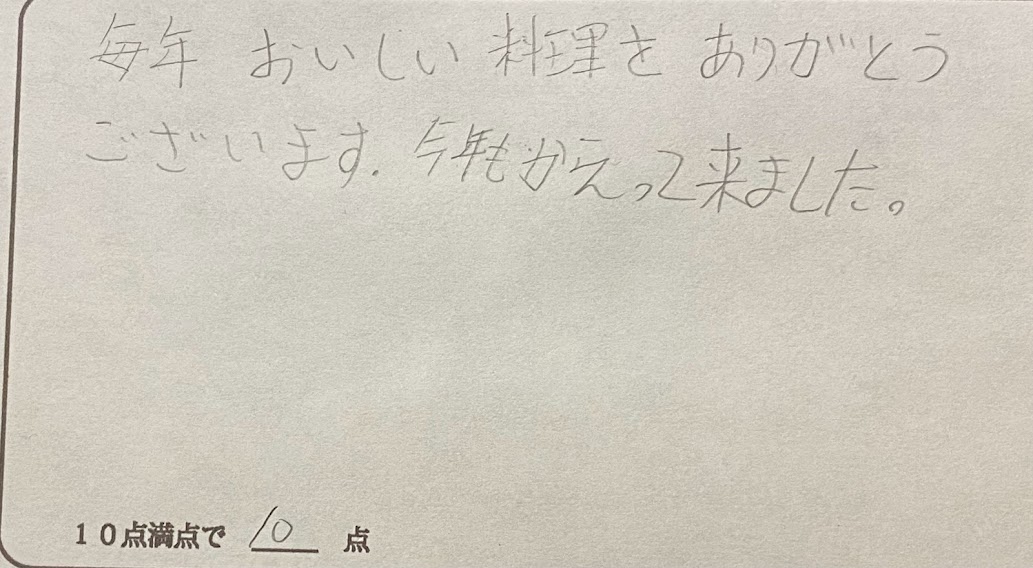 毎年 おいしい 料理を ありがとう
ございます. 今年もかえって来ました。
10点満点で 10 点